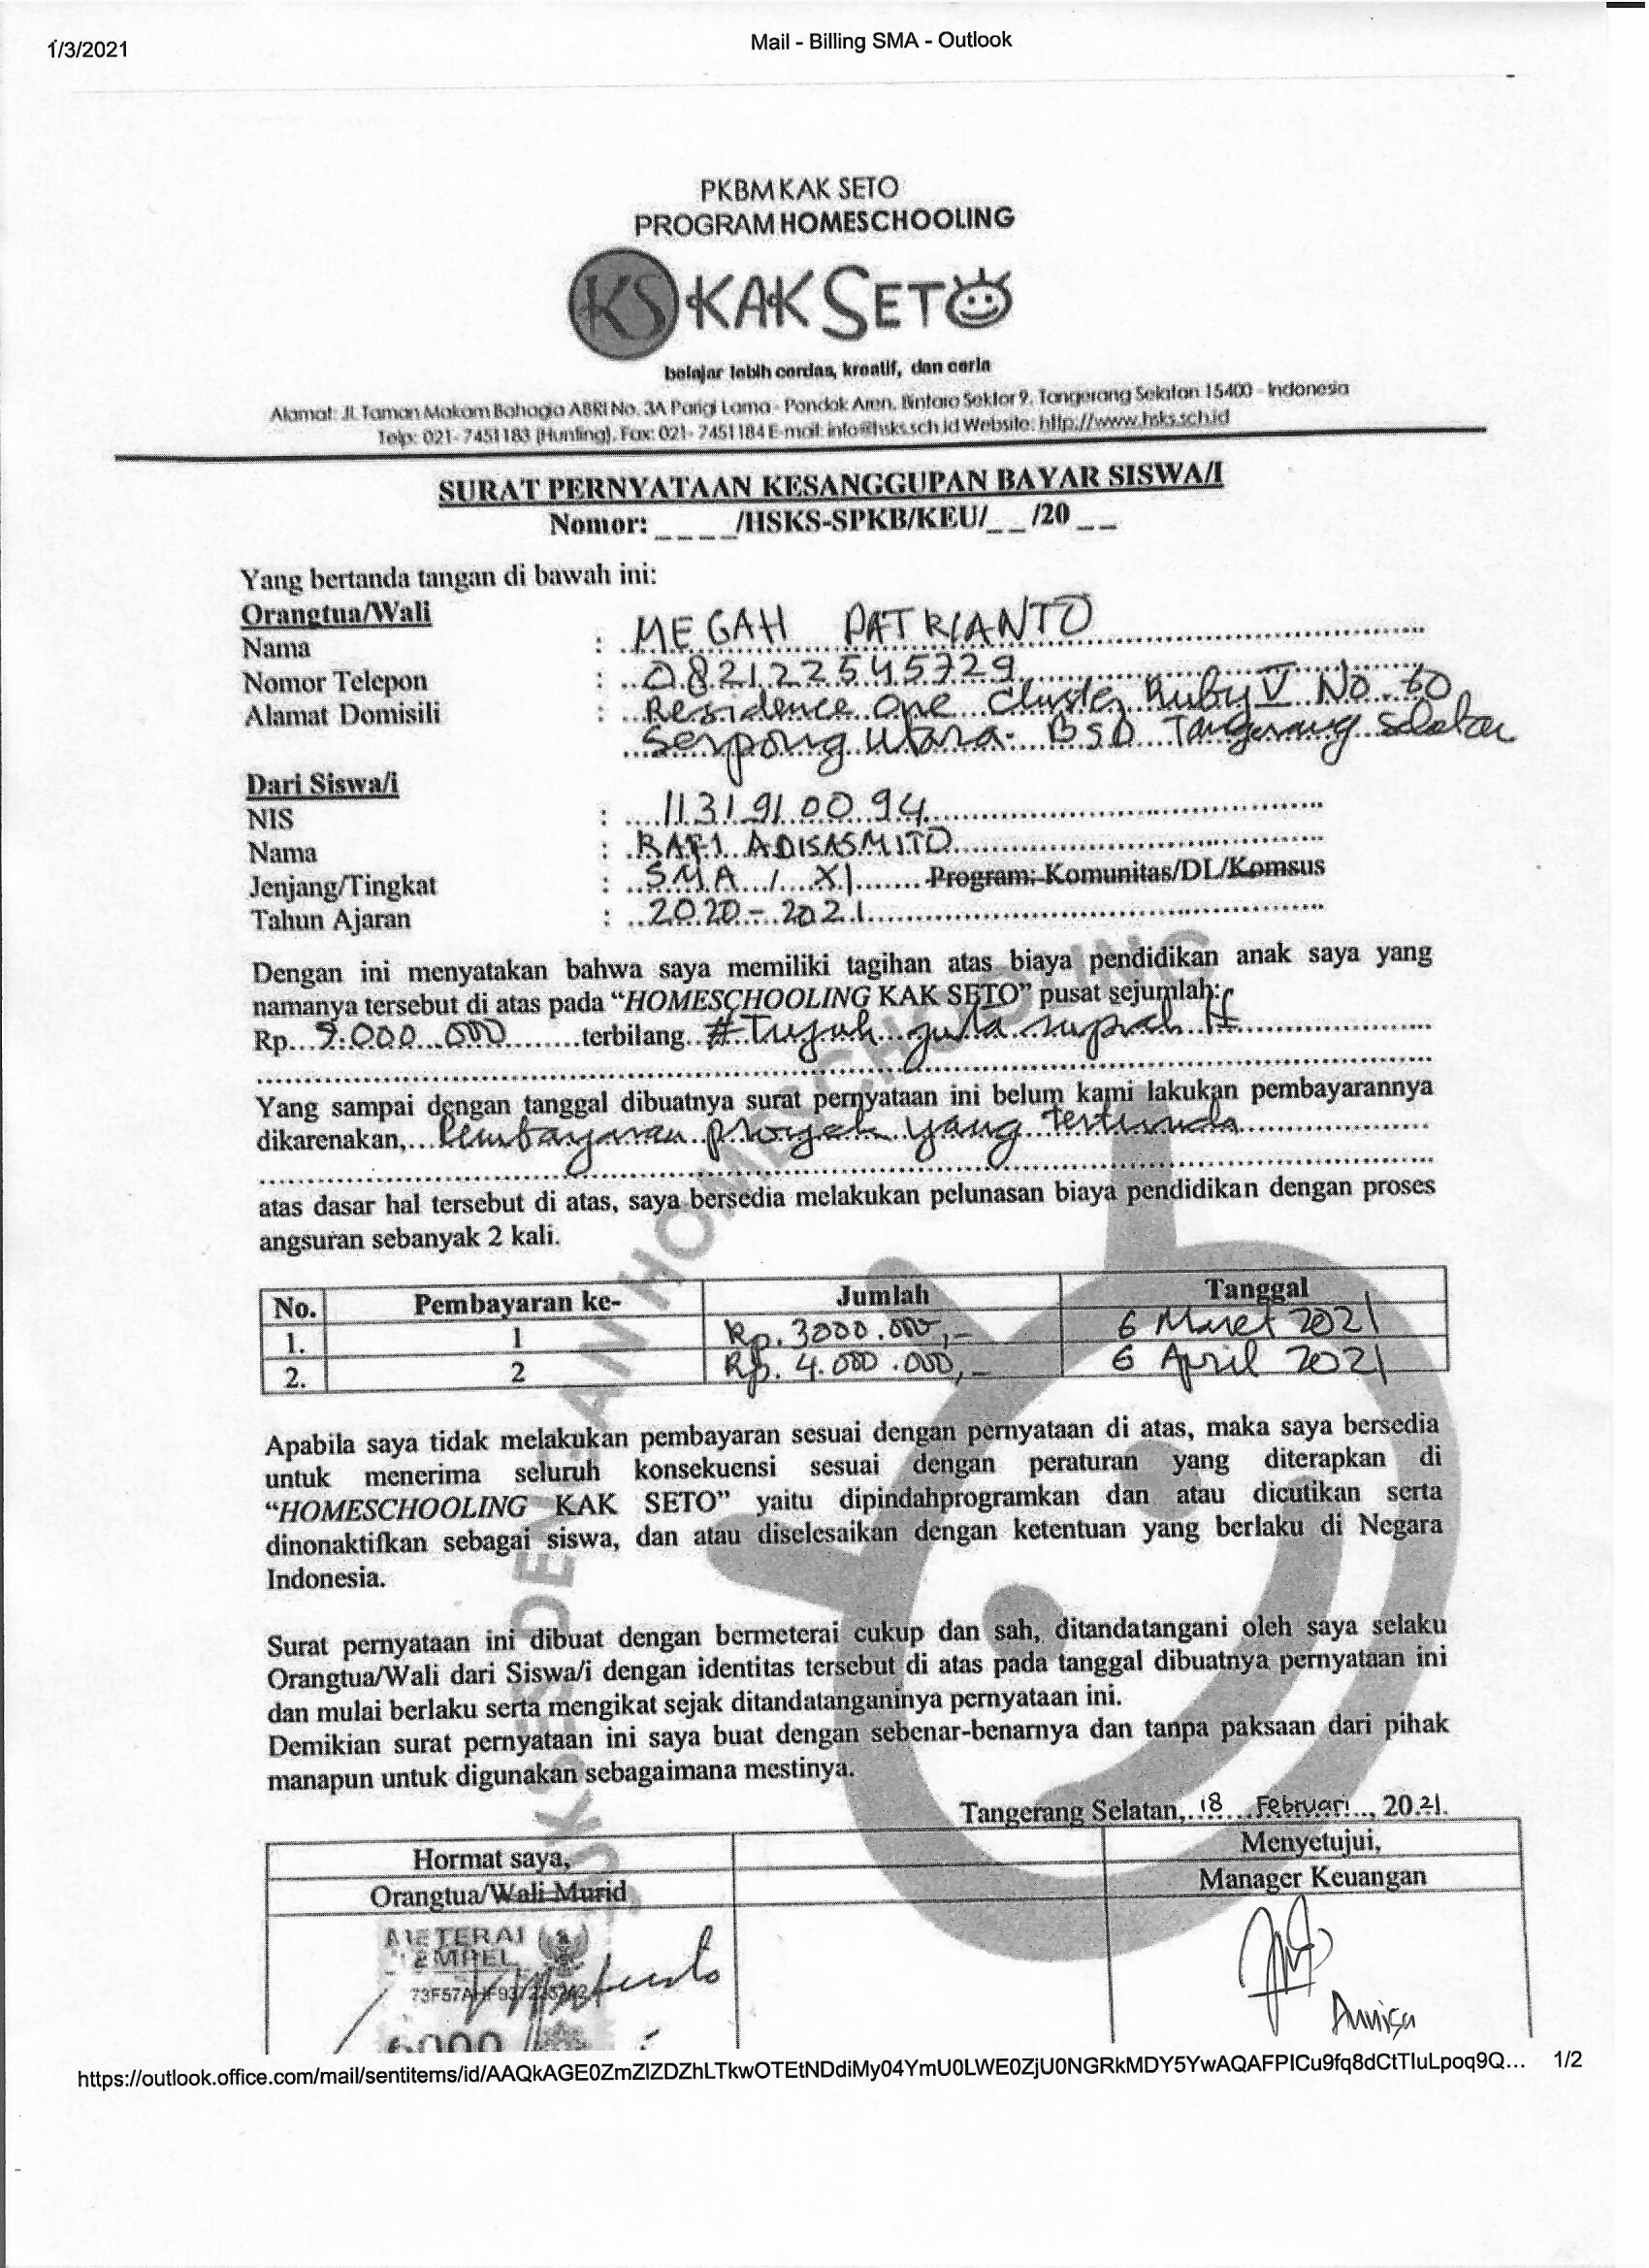 1/3/2021
Mail - Billing SMA - Outlook
PKBM KAK SETO
PROGRAM HOMESCHOOLING
KS KAK SETO
belajar lebih cerdas, kreatif, dan ceria
Alamat: Jl. Taman Makam Bahagia ABRI No. 3A Parigi Lama - Pondok Aren, Bintaro Sektor 9, Tangerang Selatan 15400 - Indonesia
Telp: 021- 7451183 (Hunting), Fax: 021- 7451184 E-mail: info@hsks.sch.id Website: http://www.hsks.sch.id
SURAT PERNYATAAN KESANGGUPAN BAYAR SISWA/I
Nomor: _ _ _ _/HSKS-SPKB/KEU/_ _ /20 _ _
Yang bertanda tangan di bawah ini:
Orangtua/Wali
Nama : MEGAH PATRIANTO
Nomor Telepon : 082122545729
Alamat Domisili : Residence One Cluster Ruby V No. 60
Serpong Utara - BSD Tangerang Selatan
Dari Siswa/i
NIS : 1131910094
Nama : RAFI ADISASMITO
Jenjang/Tingkat : SMA / XI Program: Komunitas/DL/Komsus
Tahun Ajaran : 2020 - 2021
Dengan ini menyatakan bahwa saya memiliki tagihan atas biaya pendidikan anak saya yang
namanya tersebut di atas pada “HOMESCHOOLING KAK SETO” pusat sejumlah:
Rp. 7.000.000 terbilang # Tujuh juta rupiah #
Yang sampai dengan tanggal dibuatnya surat pernyataan ini belum kami lakukan pembayarannya
dikarenakan, Pembayaran proyek yang tertunda
atas dasar hal tersebut di atas, saya bersedia melakukan pelunasan biaya pendidikan dengan proses
angsuran sebanyak 2 kali.
No. Pembayaran ke- Jumlah Tanggal
1. 1 Rp. 3000.000,- 6 Maret 2021
2. 2 Rp. 4.000.000,- 6 April 2021
Apabila saya tidak melakukan pembayaran sesuai dengan pernyataan di atas, maka saya bersedia
untuk menerima seluruh konsekuensi sesuai dengan peraturan yang diterapkan di
“HOMESCHOOLING KAK SETO” yaitu dipindahprogramkan dan atau dicutikan serta
dinonaktifkan sebagai siswa, dan atau diselesaikan dengan ketentuan yang berlaku di Negara
Indonesia.
Surat pernyataan ini dibuat dengan bermeterai cukup dan sah, ditandatangani oleh saya selaku
Orangtua/Wali dari Siswa/i dengan identitas tersebut di atas pada tanggal dibuatnya pernyataan ini
dan mulai berlaku serta mengikat sejak ditandatanganinya pernyataan ini.
Demikian surat pernyataan ini saya buat dengan sebenar-benarnya dan tanpa paksaan dari pihak
manapun untuk digunakan sebagaimana mestinya.
Tangerang Selatan, 18 Februari, 2021.
Hormat saya, Menyetujui,
Orangtua/Wali Murid Manager Keuangan
METERAI
TEMPEL
6000
Annisa
https://outlook.office.com/mail/sentitems/id/AAQkAGE0ZmZlZDZhLTkwOTEtNDdiMy04YmU0LWE0ZjU0NGRkMDY5YwAQAFPICu9fq8dCtTIuLpoq9Q... 1/2